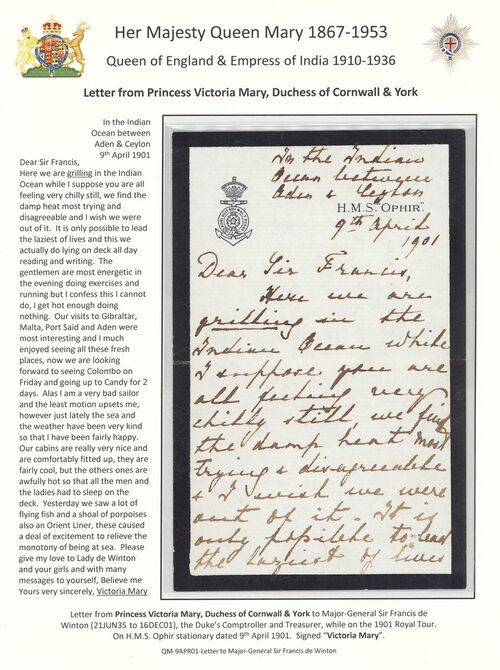 Her Majesty Queen Mary 1867-1953
Queen of England & Empress of India 1910-1936
Letter from Princess Victoria Mary, Duchess of Cornwall & York
In the Indian
Ocean between
Aden & Ceylon
9th April 1901
Dear Sir Francis,
Here we are grilling in the Indian
Ocean while I suppose you are all
feeling very chilly still, we find the
damp heat most trying and
disagreeable and I wish we were
out of it.  It is only possible to lead
the laziest of lives and this we
actually do lying on deck all day
reading and writing.  The
gentlemen are most energetic in
the evening doing exercises and
running but I confess this I cannot
do, I get hot enough doing
nothing.  Our visits to Gibraltar,
Malta, Port Said and Aden were
most interesting and I much
enjoyed seeing all these fresh
places, now we are looking
forward to seeing Colombo on
Friday and going up to Candy for 2
days.  Alas I am a very bad sailor
and the least motion upsets me,
however just lately the sea and
the weather have been very kind
so that I have been fairly happy.
Our cabins are really very nice and
are comfortably fitted up, they are
fairly cool, but the others ones are
awfully hot so that all the men and
the ladies had to sleep on the
deck.  Yesterday we saw a lot of
flying fish and a shoal of porpoises
also an Orient Liner, these caused
a deal of excitement to relieve the
monotony of being at sea.  Please
give my love to Lady de Winton
and your girls and with many
messages to yourself, Believe me
Yours very sincerely, Victoria Mary
In the Indian
Ocean between
Aden & Ceylon
H.M.S. "OPHIR".
9th April
1901
Dear Sir Francis,
Here we are
grilling in the
Indian Ocean while
I suppose you are
all feeling very
chilly still, we find
the damp heat most
trying & disagreeable
& I wish we were
out of it. It is
only possible to lead
the laziest of lives
Letter from Princess Victoria Mary, Duchess of Cornwall & York to Major-General Sir Francis de
Winton (21JUN35 to 16DEC01), the Duke's Comptroller and Treasurer, while on the 1901 Royal Tour.
On H.M.S. Ophir stationary dated 9th April 1901.  Signed "Victoria Mary".
QM-9APR01-Letter to Major-General Sir Francis de Winton